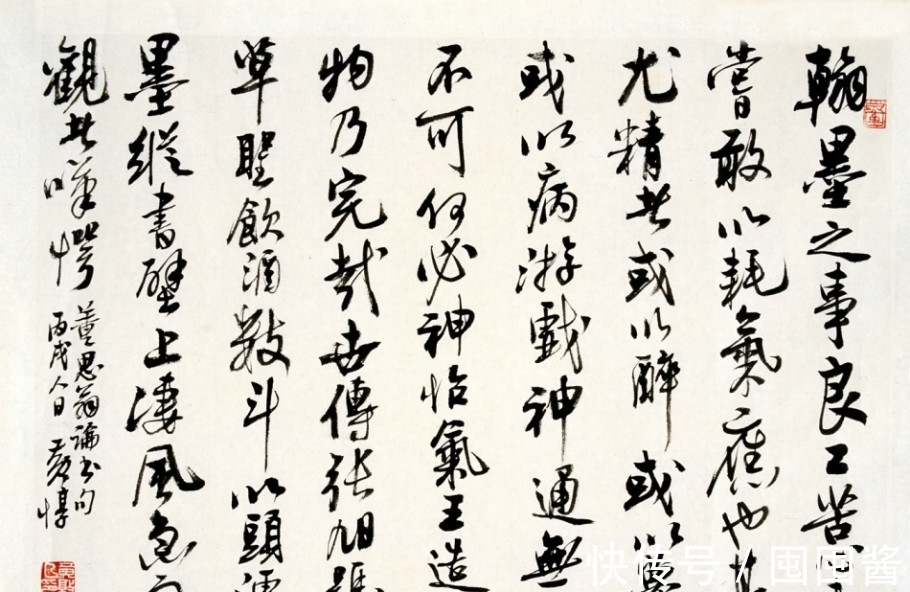 翰墨之事良工苦
嘗敢以耗氣應也
尤精者或以醉或以
或以病游戲神通無
不可何必神怡氣王造
物乃完哉世傳張旭號
草聖飲酒數斗以頭濡
墨縱書壁上淒風急
觀者嘆愕
董思翁論書句
丙戌人日 黃惇
快传号 / 囤囤酱